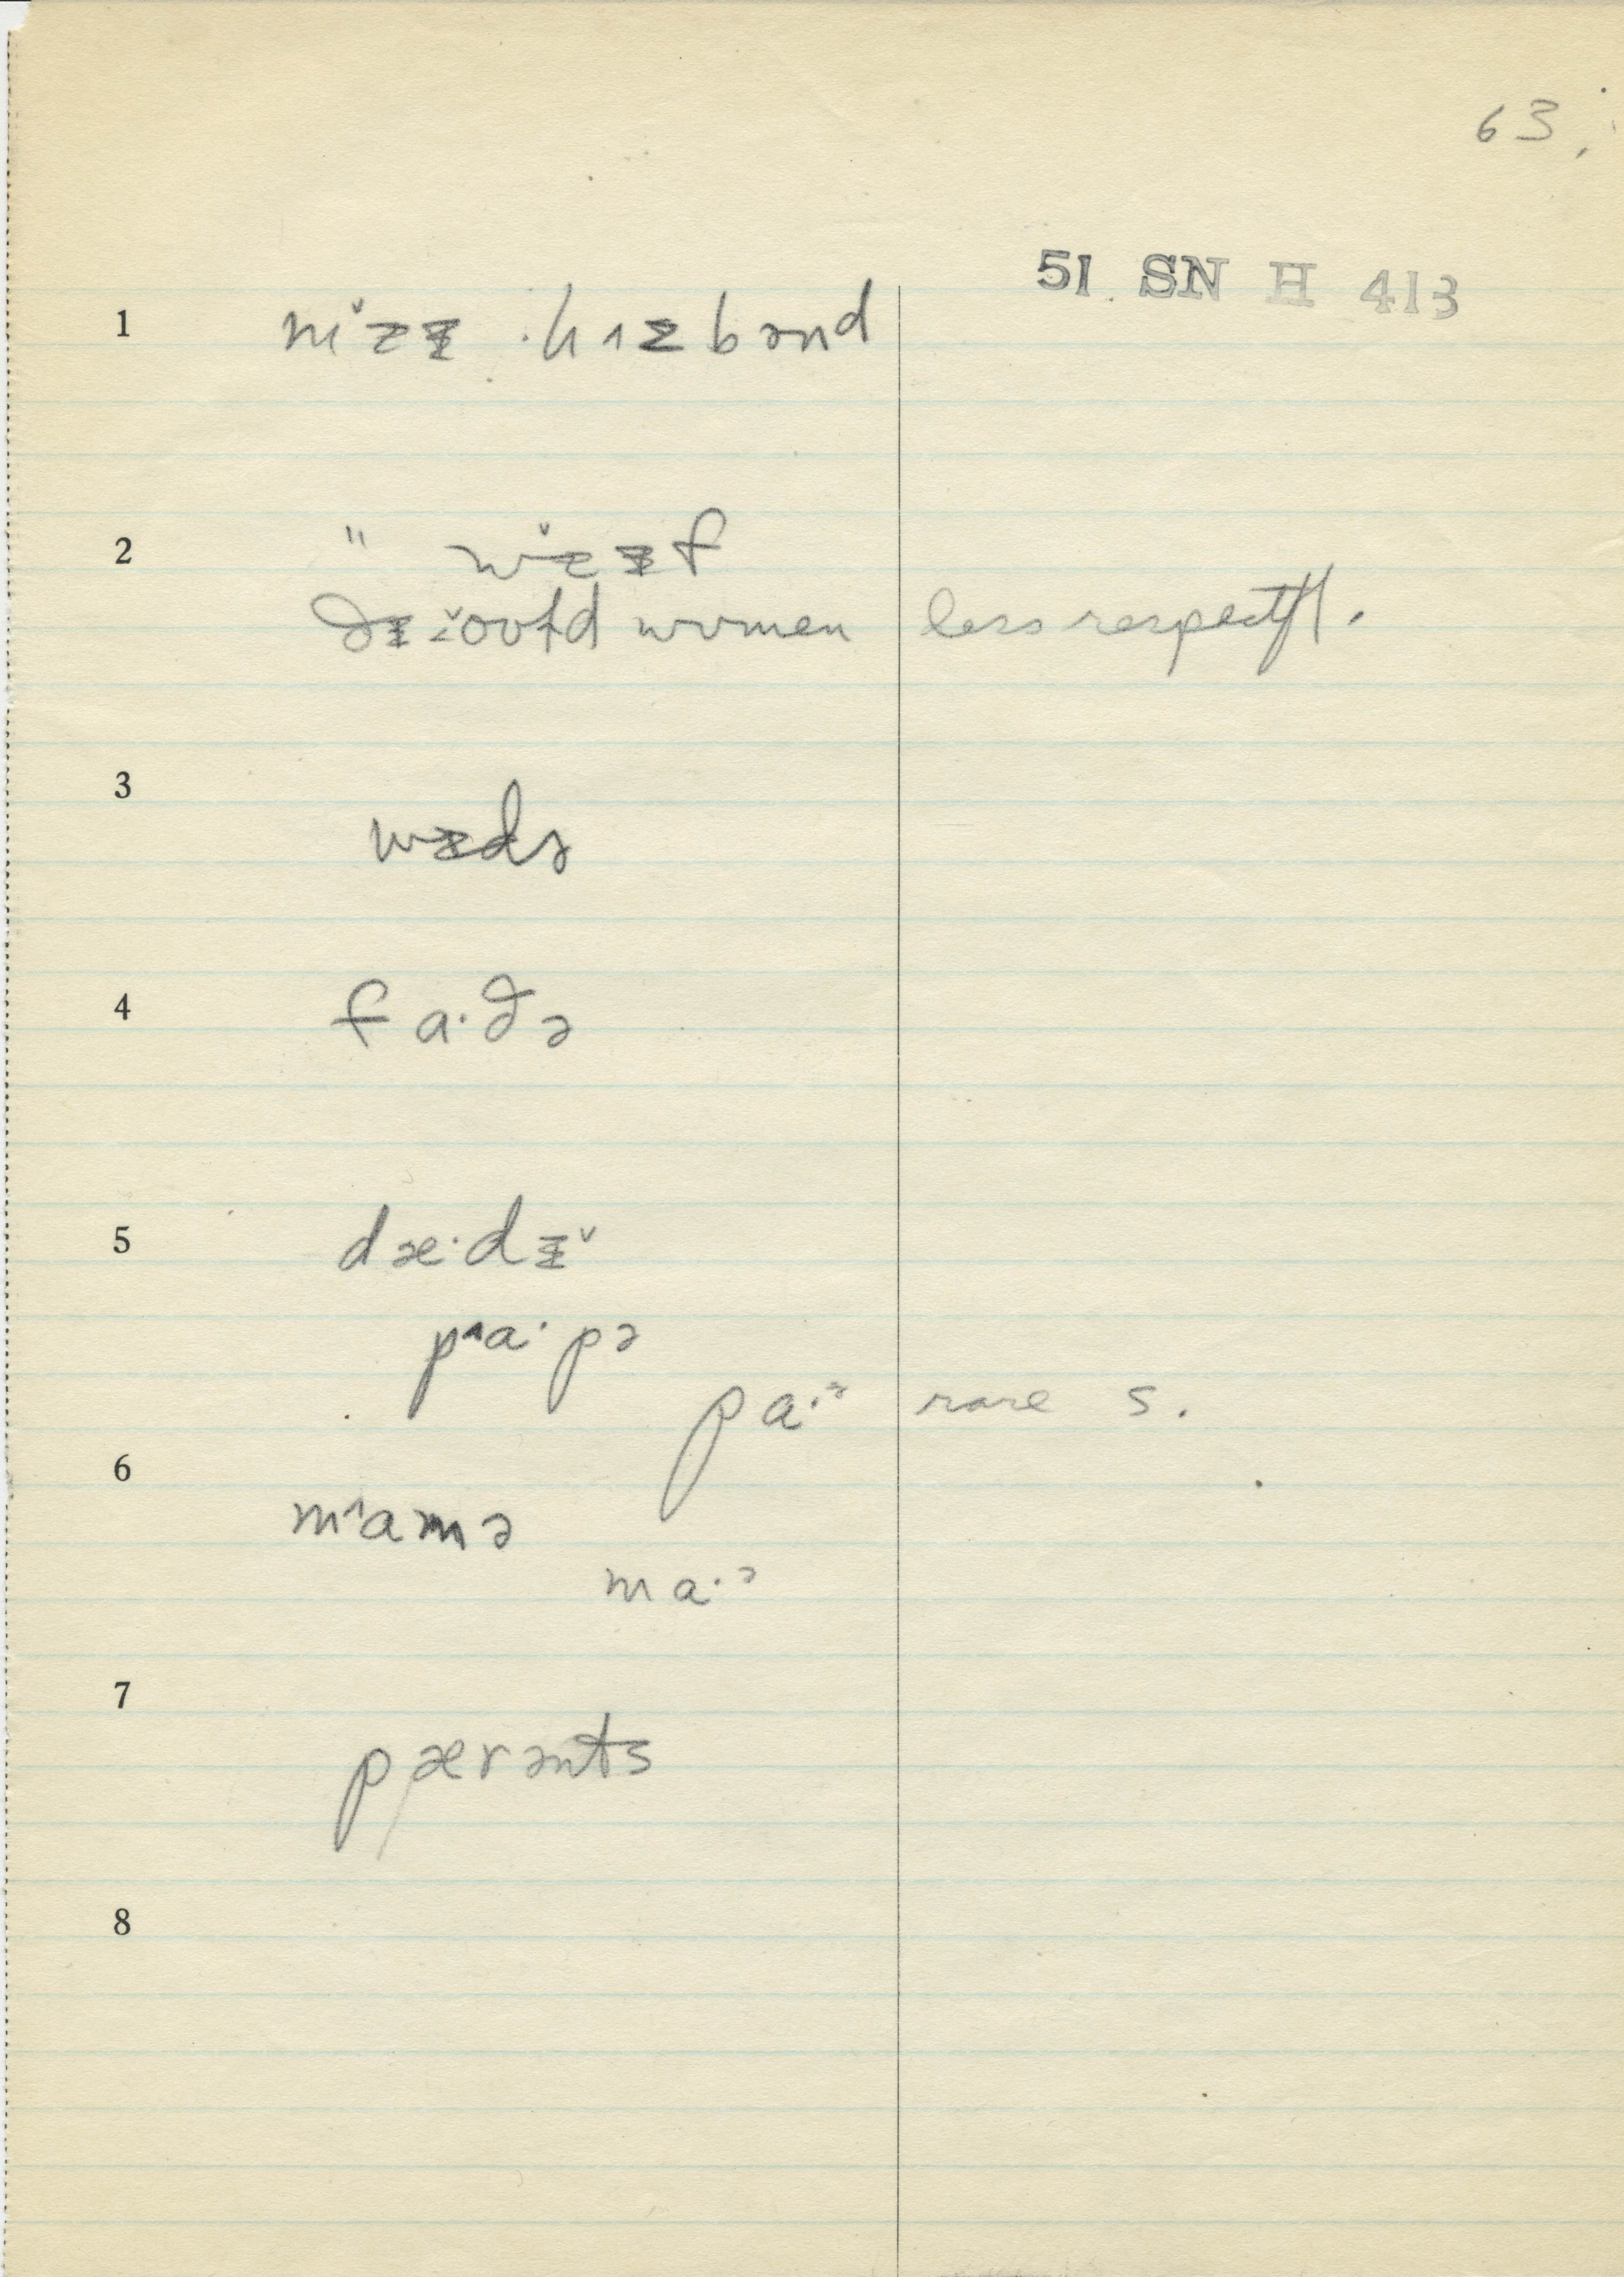 63,
51 SN H 413
1 mɐ̌ɪ hʌzbənd
2 " wɐ̌ɪf
ðɪ oʊɫd wʊmen less respectfl.
3 wɪdə
4 fa·ðə
5 dæ·dɪ̌
pʌa·pə
pa·ᵊ rare s.
6 mʌamə
ma·ᵊ
7 pærənts
8